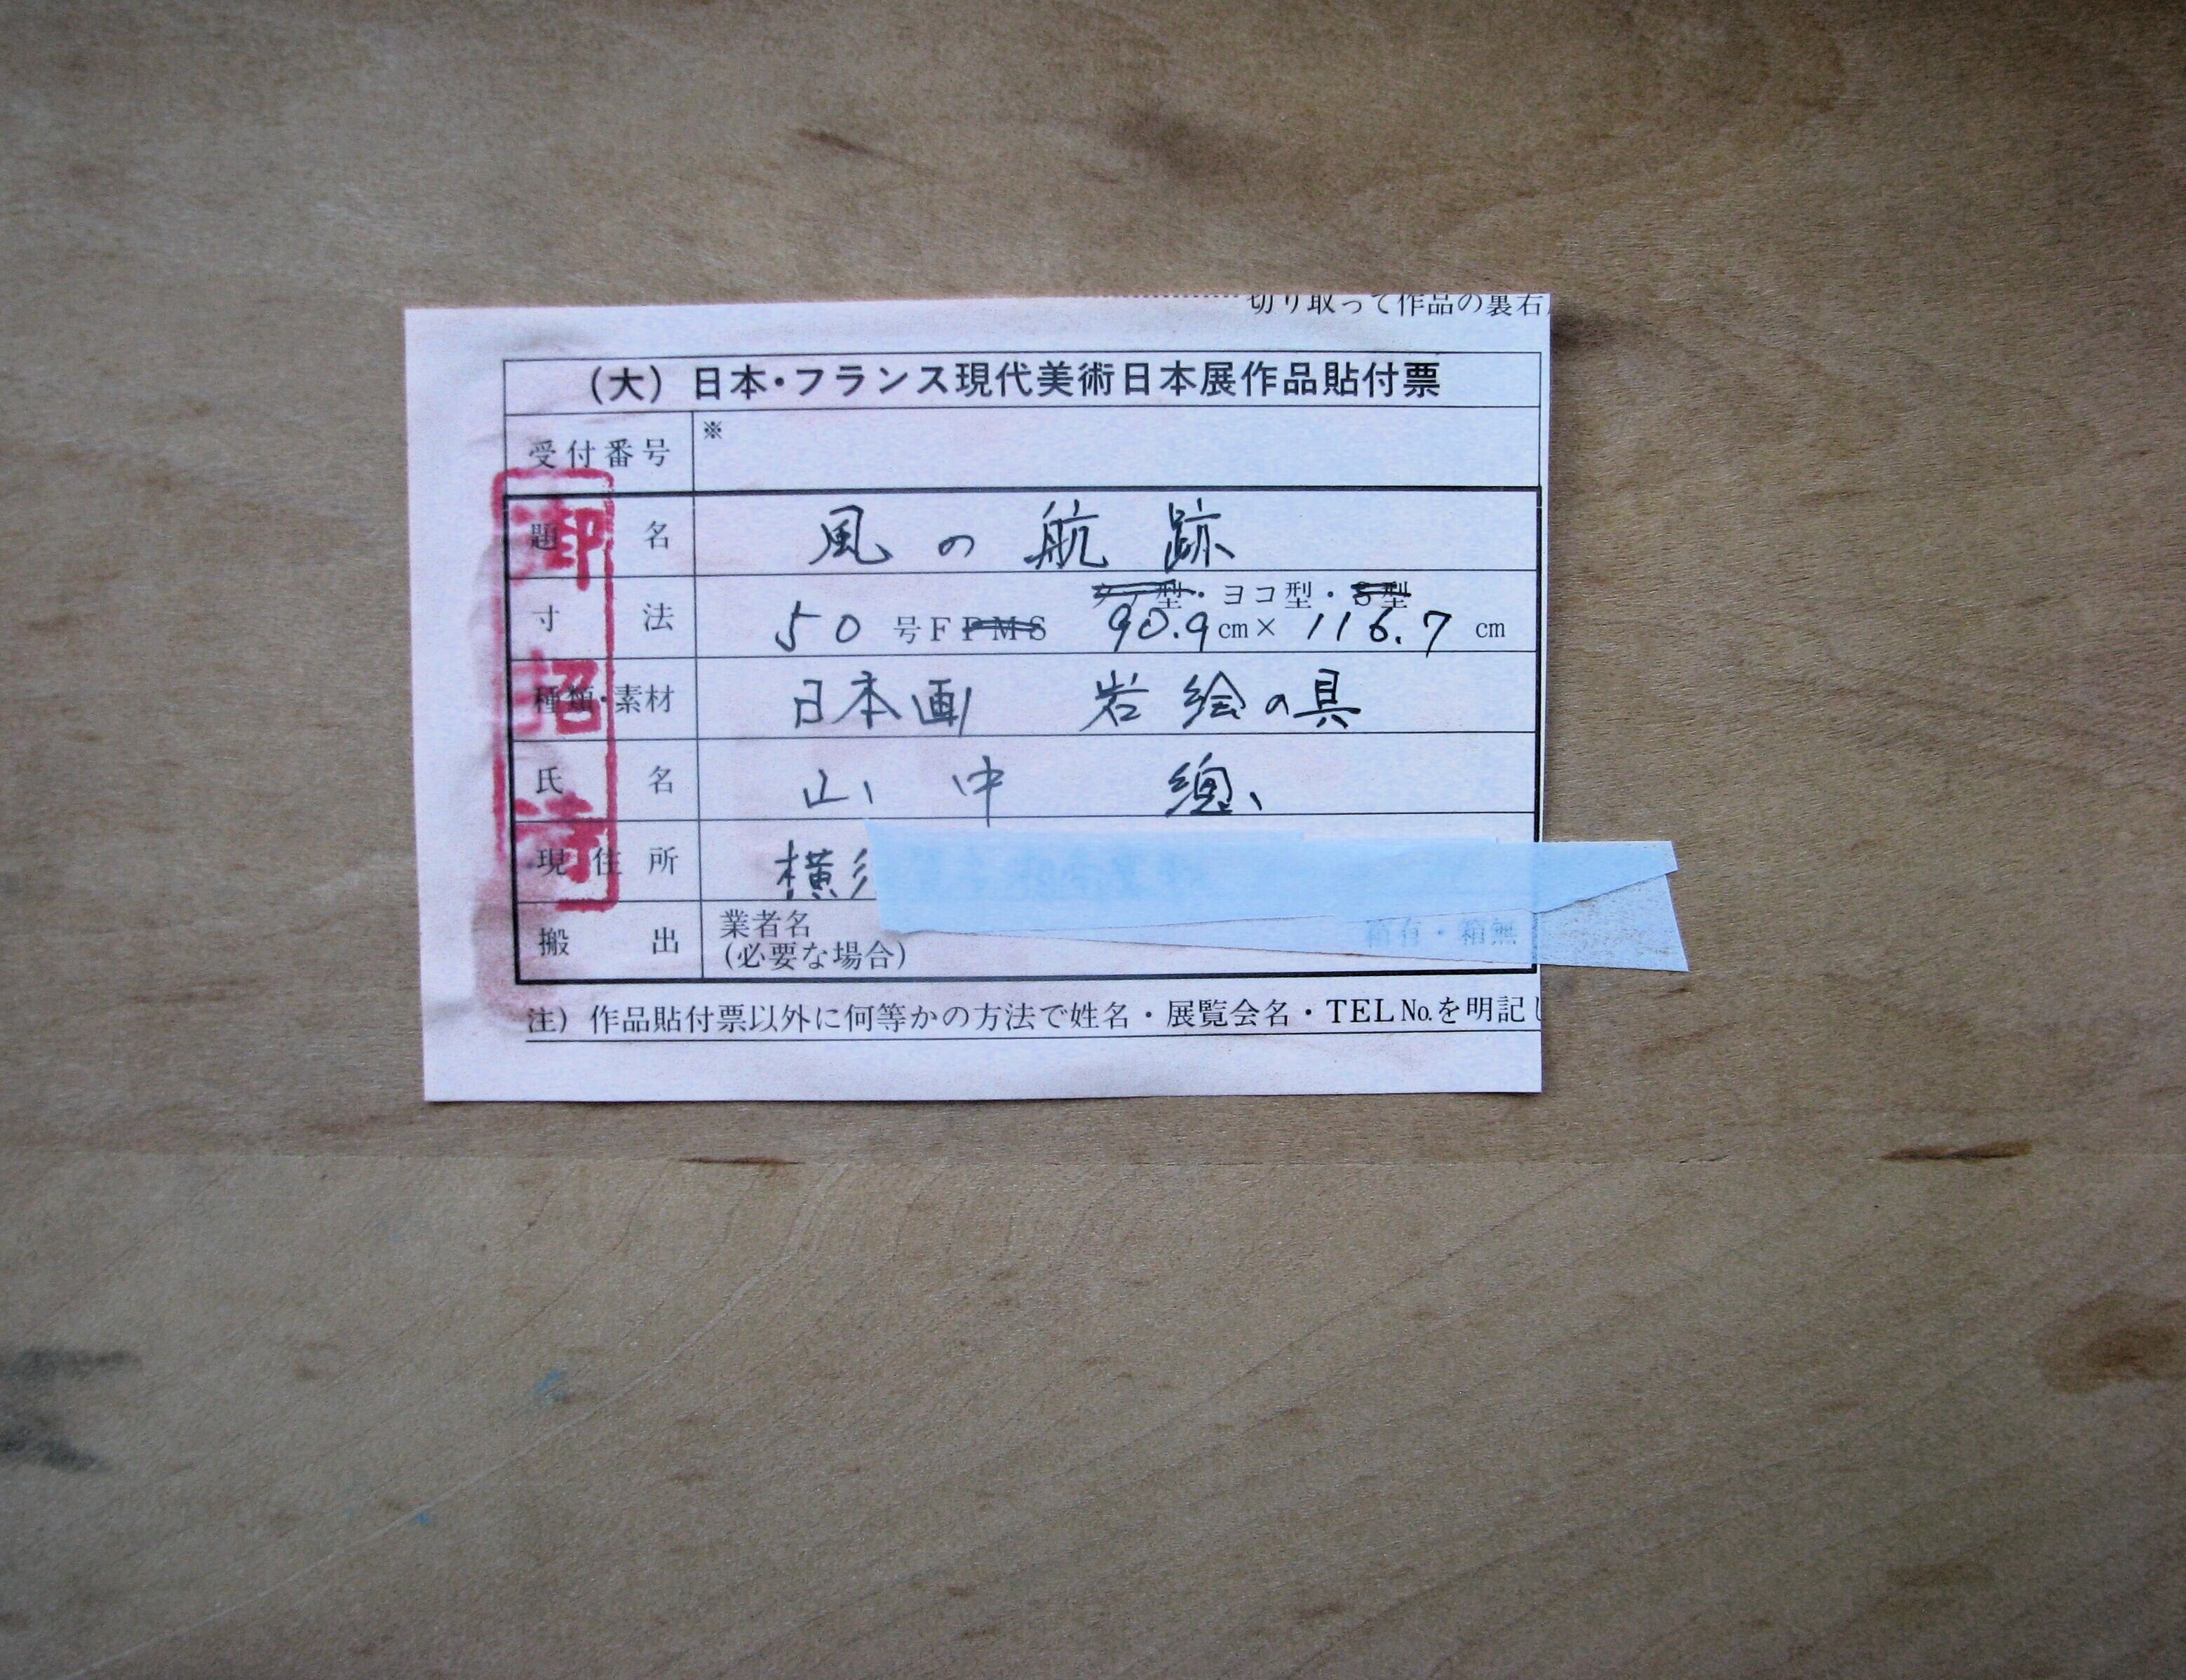 切り取って作品の裏右
(大) 日本・フランス現代美術日本展作品貼付票
受付番号 ※
題名 風の航跡
寸法 50号F PMS タテ型・ヨコ型・S型 90.9cm×116.7cm
種類・素材 日本画 岩絵の具
氏名 山中 總
現住所 横
搬出 業者名 (必要な場合) 箱有・箱無
注) 作品貼付票以外に何等かの方法で姓名・展覧会名・TEL No.を明記し
御招待